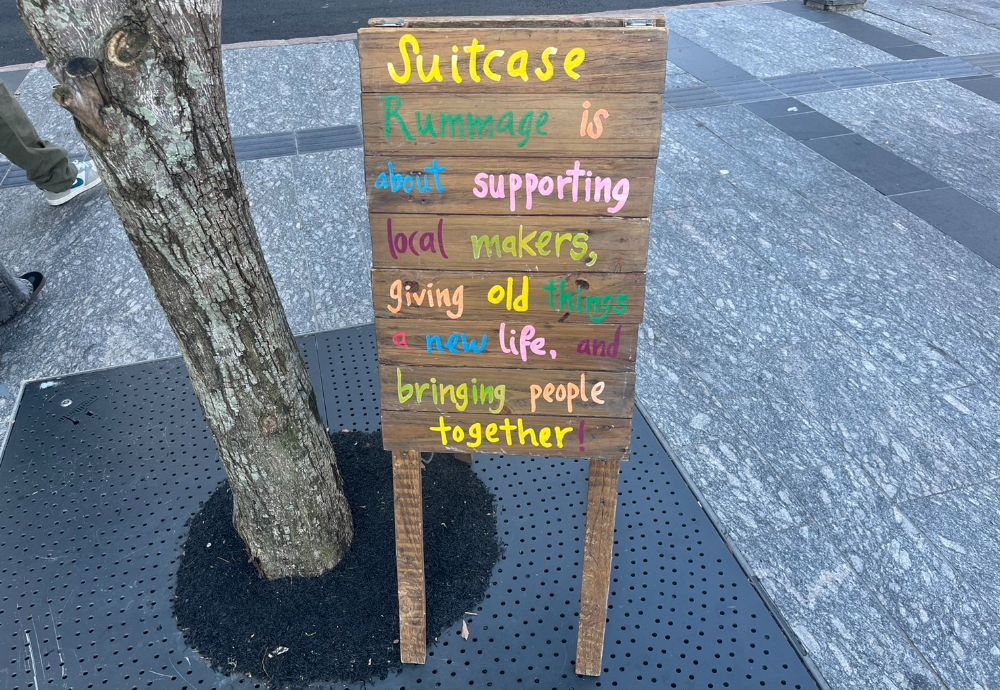 Suitcase
Rummage is
about supporting
local makers,
giving old things
a new life, and
bringing people
together!